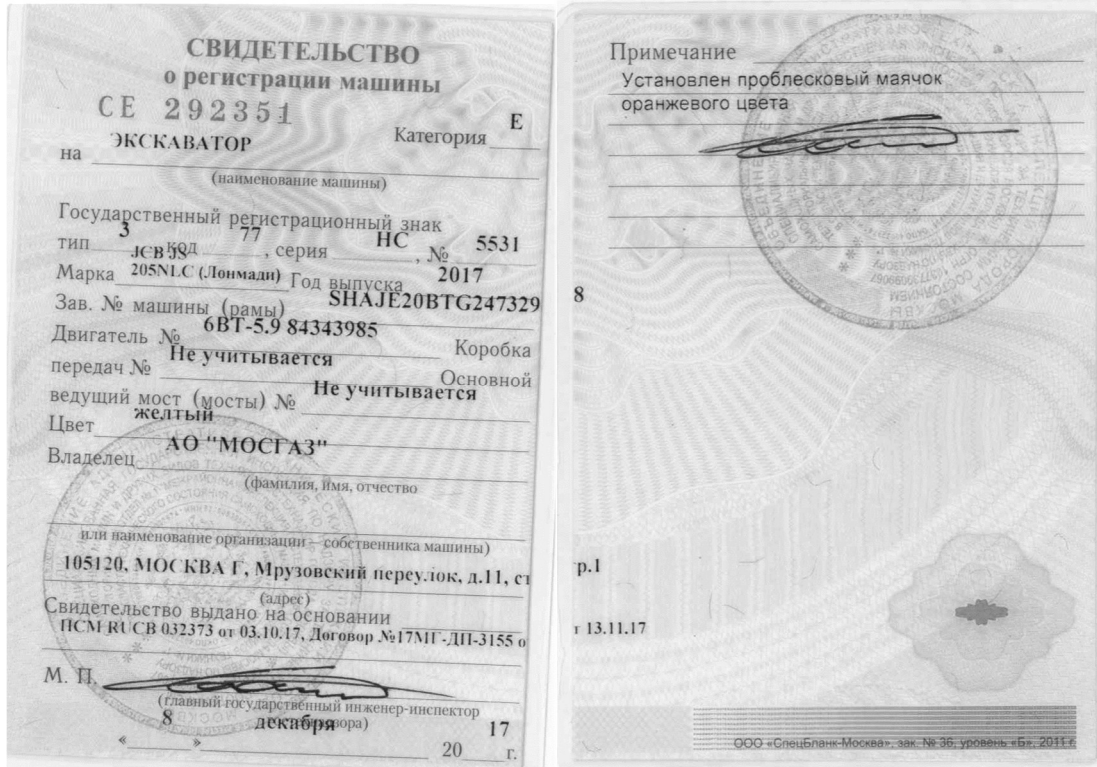 СВИДЕТЕЛЬСТВО
о регистрации машины
СЕ 292351
Категория Е
на ЭКСКАВАТОР
(наименование машины)
Государственный регистрационный знак
тип 3 код 77, серия НС, № 5531
Марка JCB JS 205NLC (Лонмади) Год выпуска 2017
Зав. № машины (рамы) SHAJE20BTG2473298
Двигатель № 6ВТ-5.9 84343985 Коробка
передач № Не учитывается Основной
ведущий мост (мосты) № Не учитывается
Цвет желтый
Владелец АО "МОСГАЗ"
(фамилия, имя, отчество
или наименование организации – собственника машины)
105120, МОСКВА Г, Мрузовский переулок, д.11, стр.1
(адрес)
Свидетельство выдано на основании
ПСМ RU СВ 032373 от 03.10.17, Договор №17МГ-ДП-3155 от 13.11.17
М. П.
(главный государственный инженер-инспектор
«8» декабря 2017 г.
Примечание
Установлен проблесковый маячок
оранжевого цвета
ООО «СпецБланк-Москва», зак. № 36, уровень «Б», 2011 г.